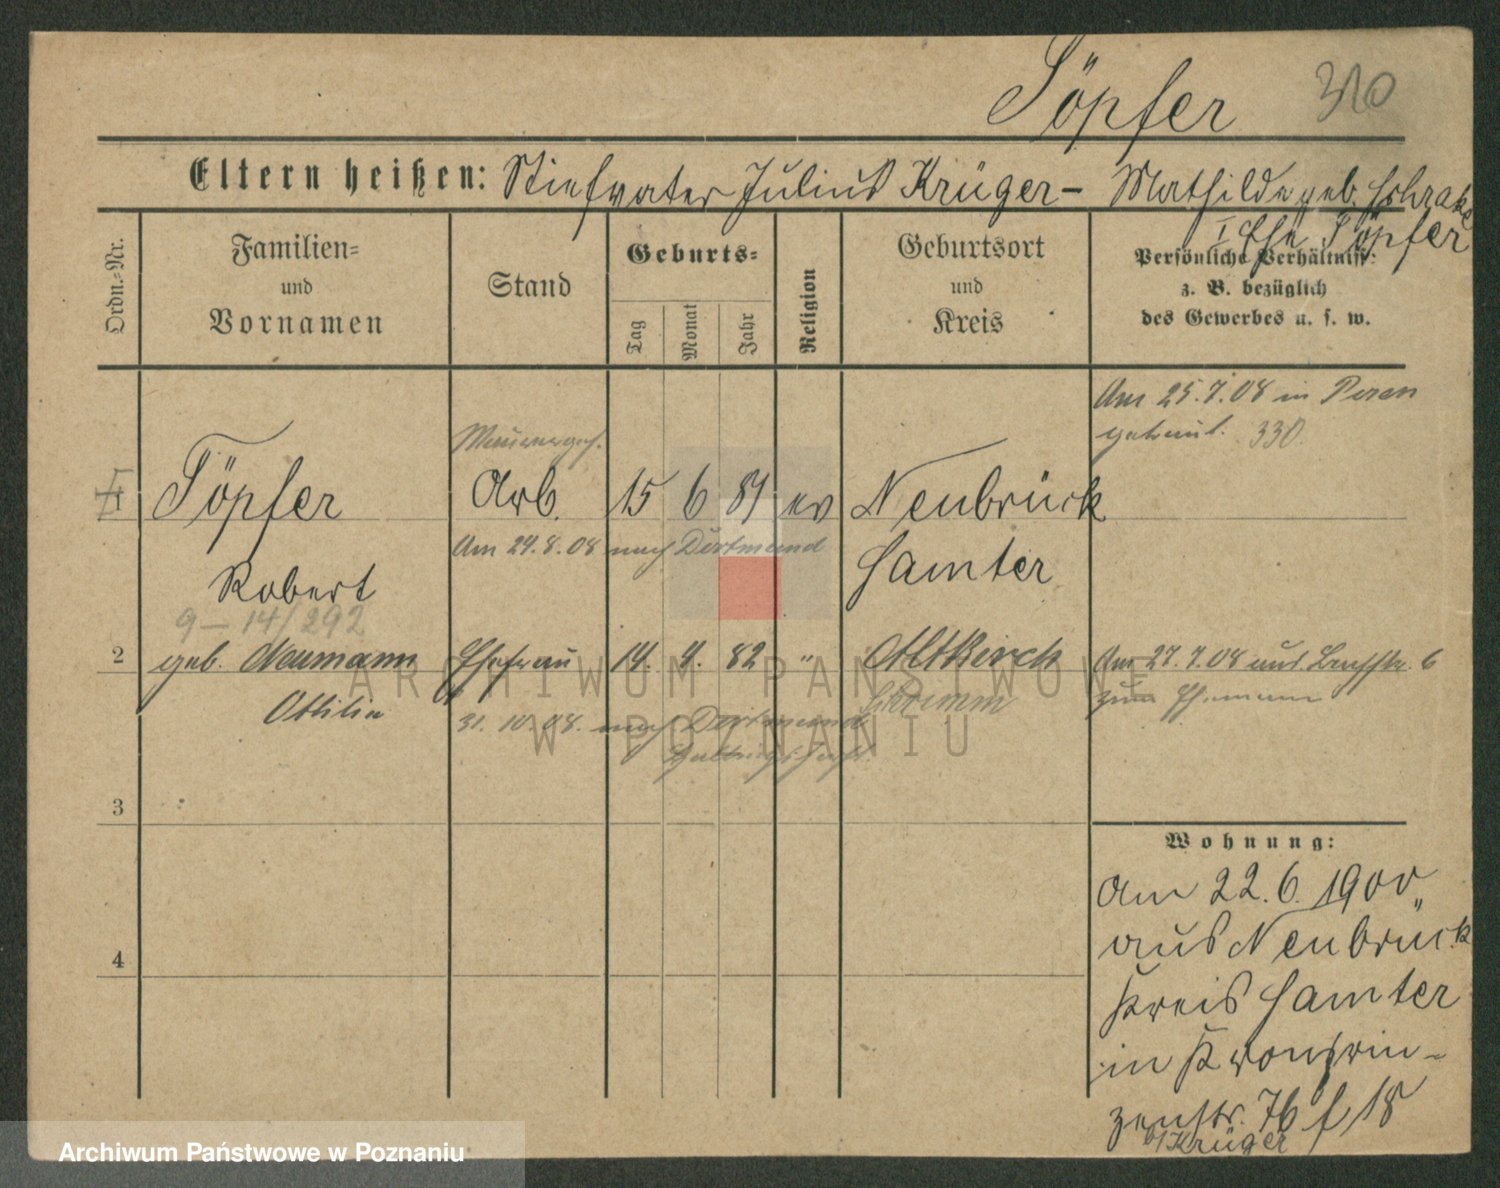 Töpfer 310
Eltern heißen: Stiefvater Julius Krüger – Mathilde geb.
I Ehe Töpfer
Ordn.-Nr.
Familien-
und
Vornamen
Stand
Geburts-
Tag
Monat
Jahr
Religion
Geburtsort
und
Kreis
Persönliche Verhältniss:
z. B. bezüglich
des Gewerbes u. s. w.
Am 25.7.08 in Posen
getraut. 330.
Maurerges.
1 Töpfer Arb. 15 6 81 ev Neubrück
Am 24.8.08 nach Dortmund
Samter
Robert
9–14/292
2 geb. Neumann Ehefrau 14. 4. 82 " Altkirch
Am 27.7.08 aus 6
Schrimm
zum Ehemann
Ottilie
31.10.08. nach Dortmund
3
4
Wohnung:
Am 22.6.1900
aus Neubrück
Kreis Samter
in Kronprin-
zenstr. 76 f 18
b/Krüger
ARCHIWUM PAŃSTWOWE
W POZNANIU
Archiwum Państwowe w Poznaniu